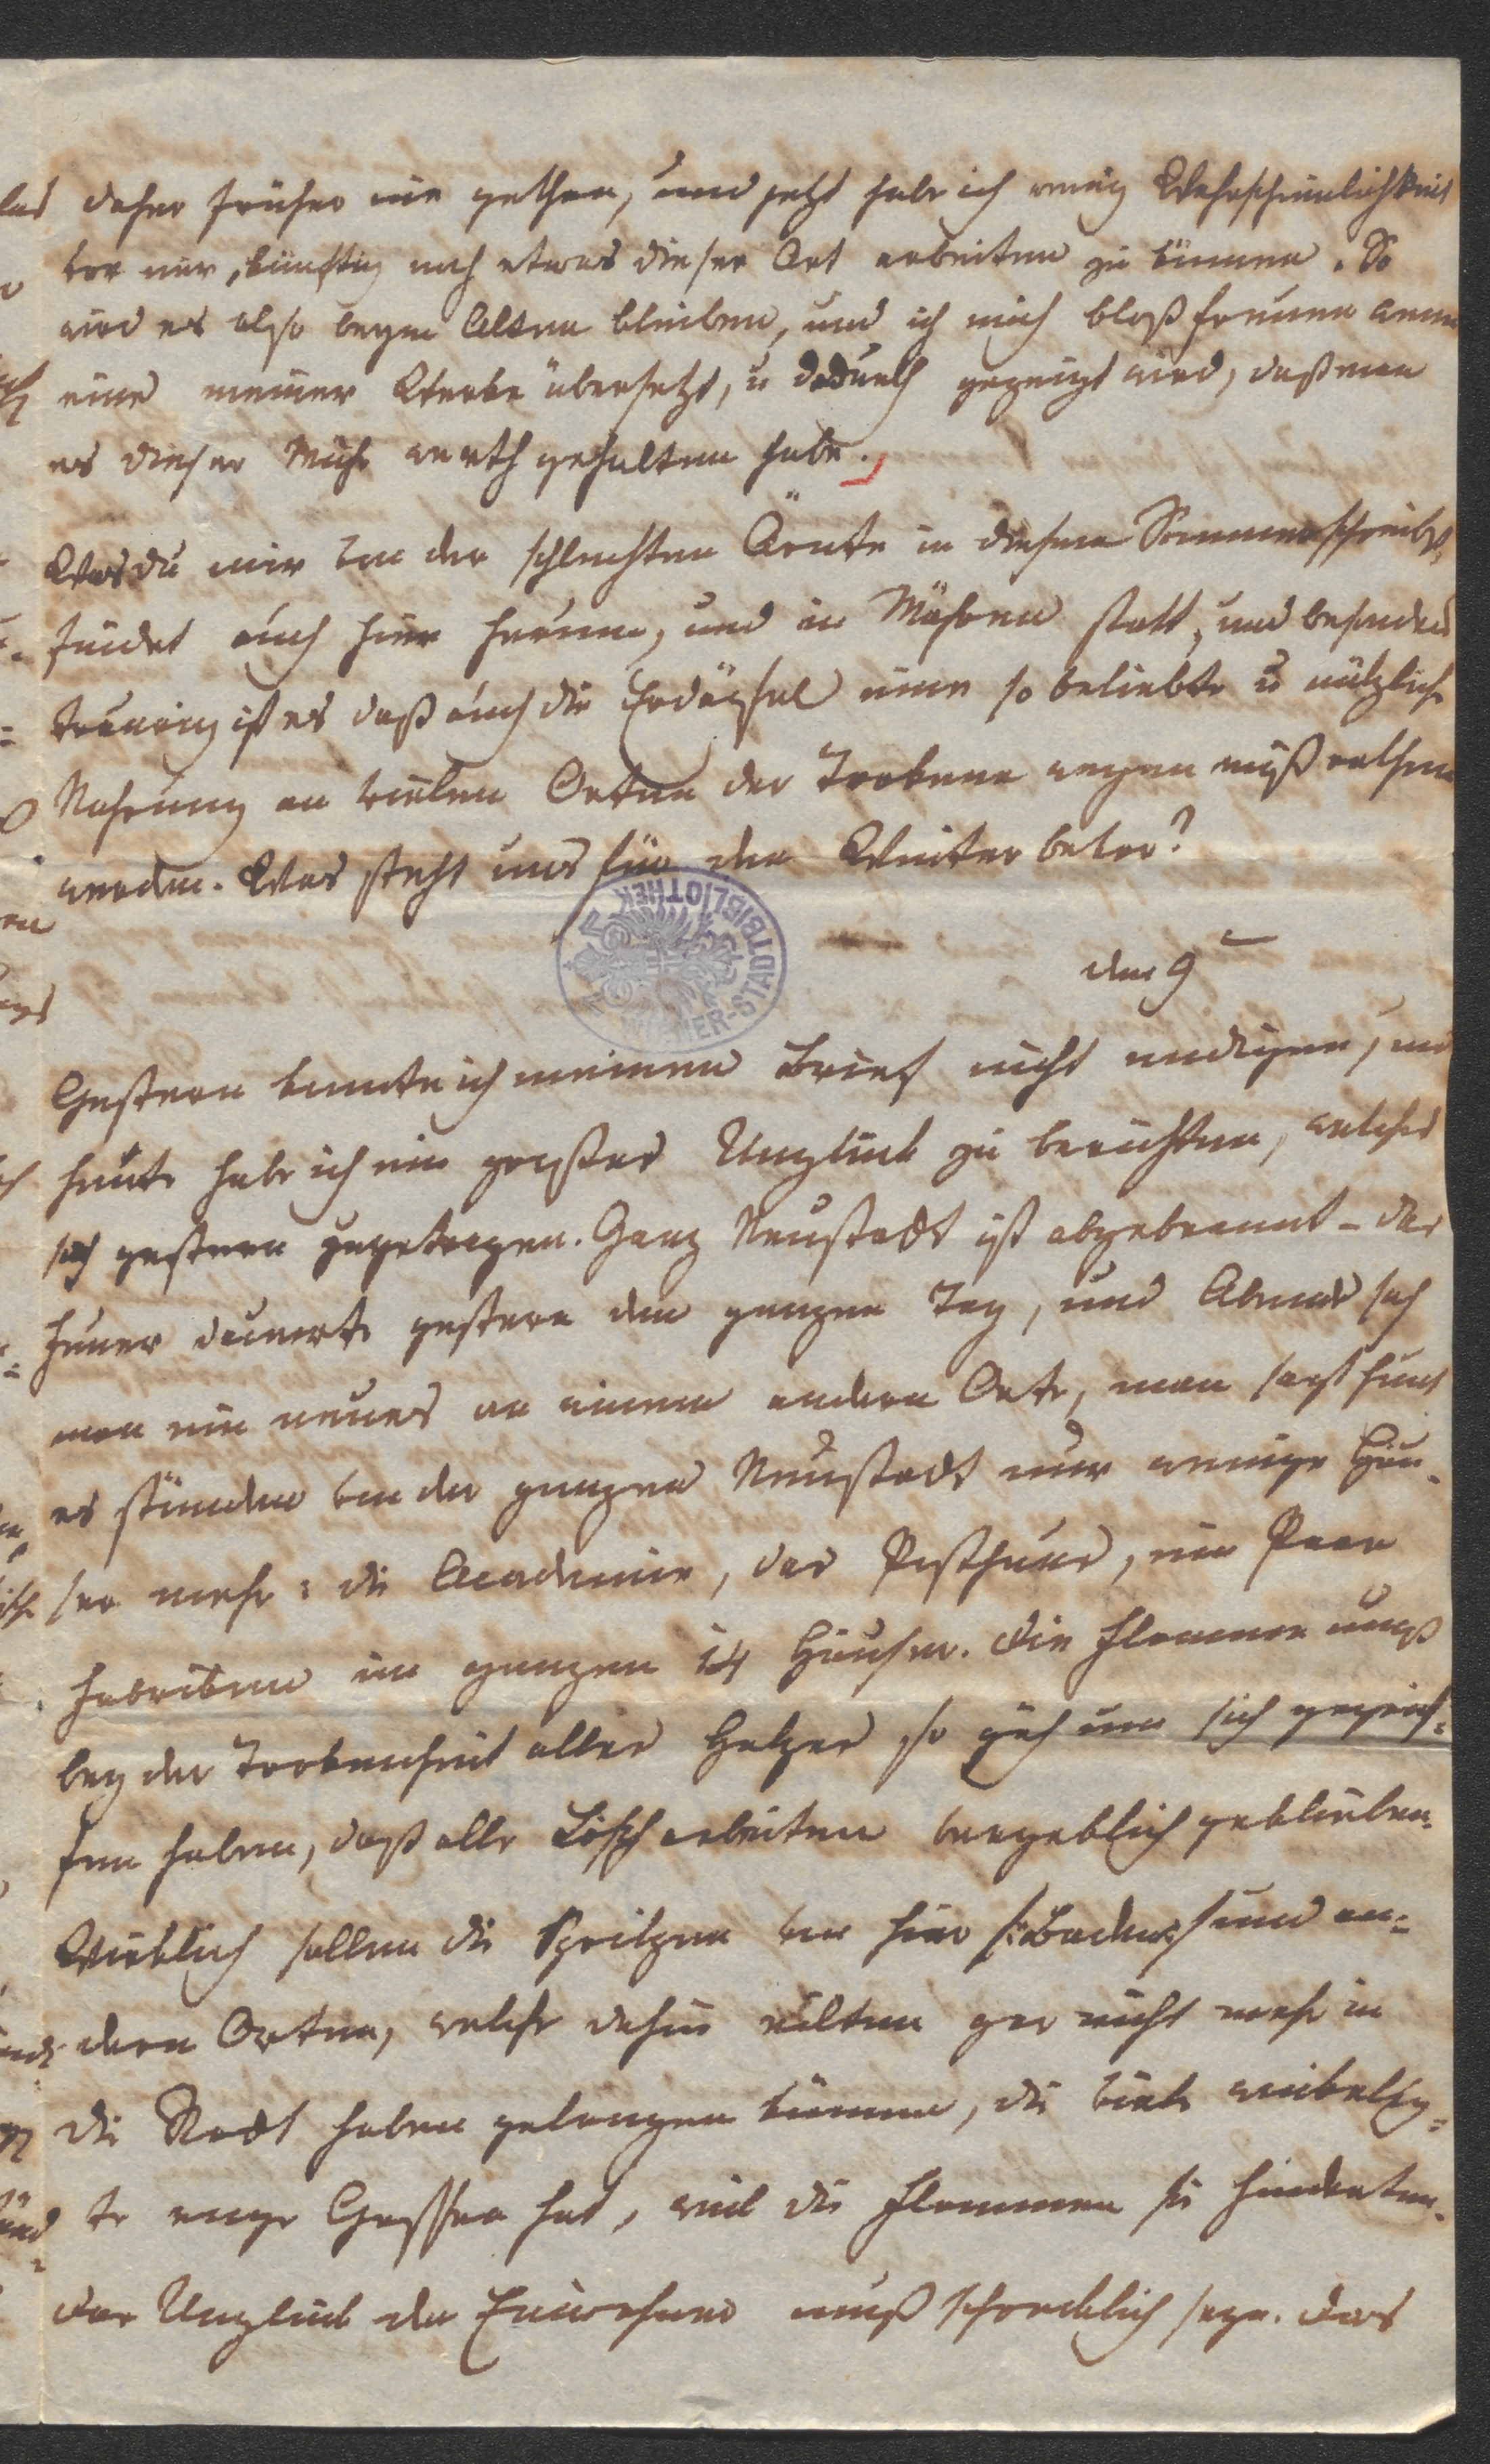 daher früher nie gethan, und jetzt habe ich wenig Wahrscheinlichkeit
vor mir, künftig noch etwas dieser Art arbeiten zu können. So
wird es also beym Alten bleiben, und ich mich bloß freuen wenn
eins meiner Werke übersetzt, u dadurch gezeigt wird, daß man
es dieser Mühe werth gehalten habe.
Was du mir von der schlechten Ärnte in diesem Sommer schreibst,
findet auch hier herum, und in Mähren statt, und besonders
traurig ist es daß auch die Erdäpfel eine so beliebte u nützliche
Nahrung an vielen Orten der Trokene wegen mißrathen
werden. Was steht uns für den Winter bevor?
WIENER-STADTBIBLIOTHEK
den 9
Gestern konnte ich meinen Brief nicht endigen, und
heute habe ich ein großes Unglück zu berichten, welches
sich gestern zugetragen. Ganz Neustadt ist abgebrannt – das
Feuer dauerte gestern den ganzen Tag, und Abends sah
man ein neues an einem andern Orte, man sagt heut
es stünden von der ganzen Neustadt nur wenige Häu-
ser mehr: die Academie, das Posthaus, ein Paar
Fabriken im ganzen 14 Häuser. Die Flamme muß
bey der Trokenheit alles Holzes so gäh um sich gegrif=
fen haben, daß alle Löscharbeiten vergeblich geblieben.
Wirklich sollen die Spritzen von hier /:Baden:/ und an=
dern Orten, welche dahin eilten gar nicht mehr in
die Stadt haben gelangen können, die viele winkelig=
te enge Gassen hat, weil die Flammen sie hinderten.
Das Unglück der Einwohner muß schrecklich seyn. Das